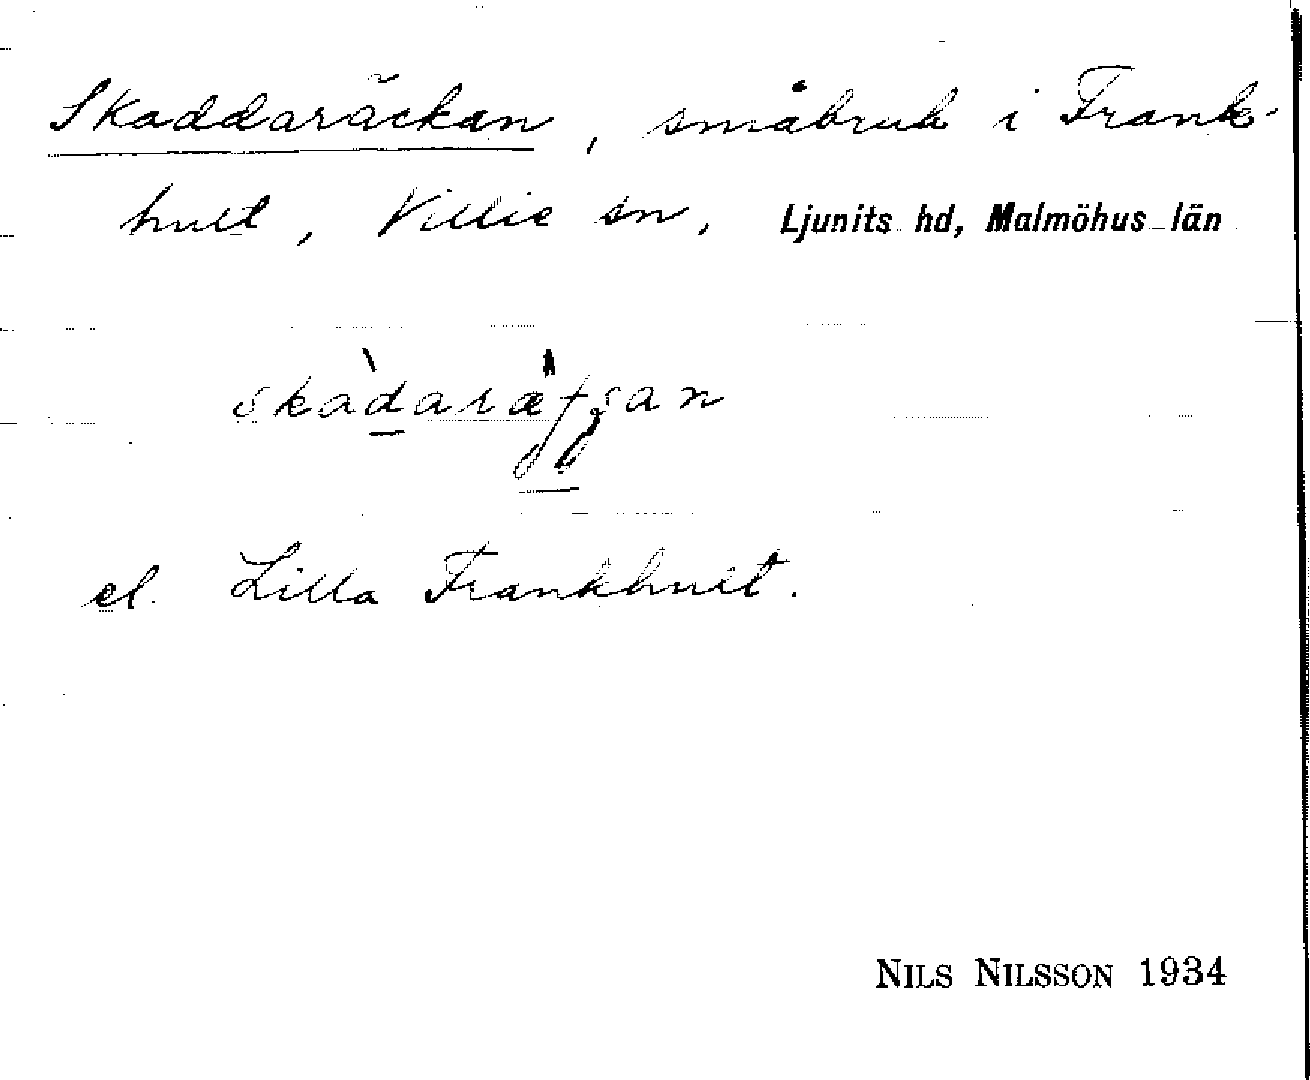 Skaddaräckan, småbruk i Frank-
hult, Villie sn, Ljunits hd, Malmöhus län
el. Lilla Frankhult.
NILS NILSSON 1934